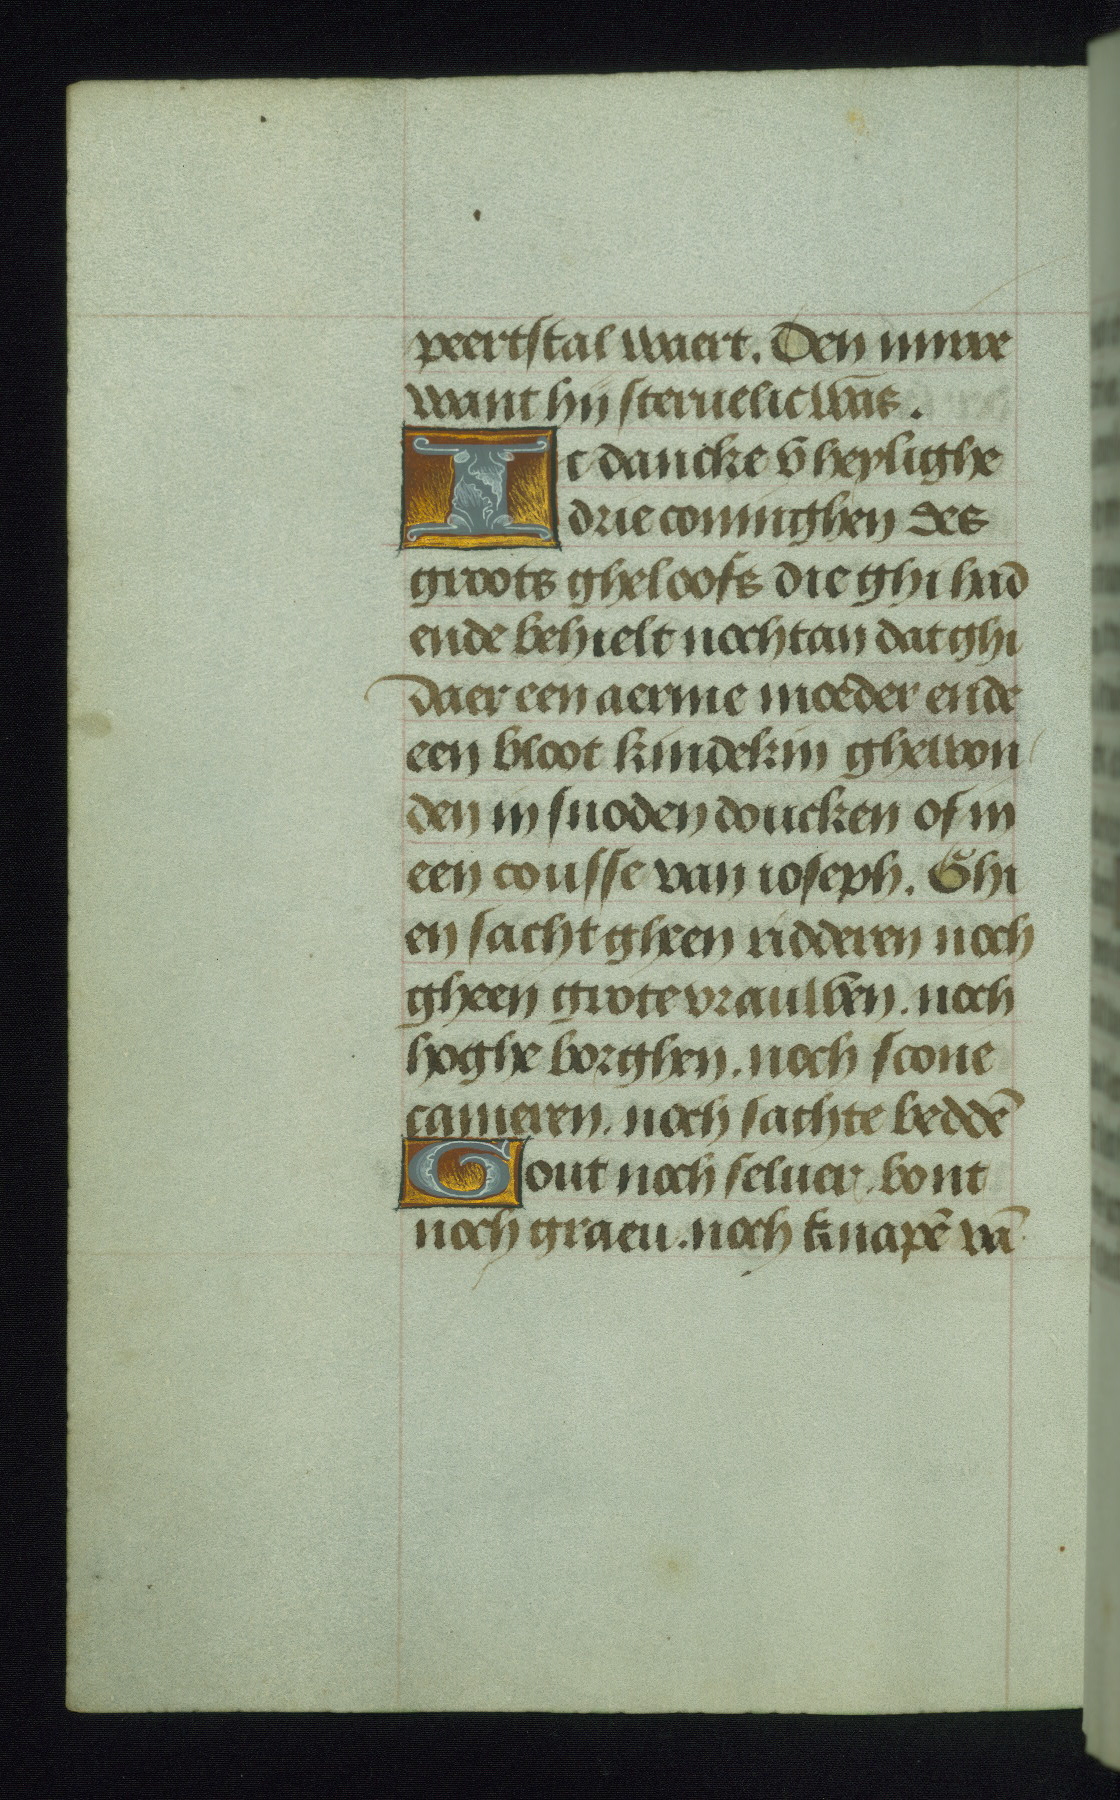 peertstal waert. Den mirre
want hij steruelic was.
Ic dancke v̄ heylighe
drie coninghen des
groots gheloofs die ghi had
ende behielt nochtan dat ghi
daer een aerme moeder ende
een bloot kindekin ghewon
den in snoden doucken of in
een cousse van ioseph. Ghi
en sacht gheen ridderen noch
gheen grote vrauwen. noch
hoghe borghen. noch scone
cameren. noch sachte beddē
Gout noch seluer. bont
noch graeu. noch knapē vā